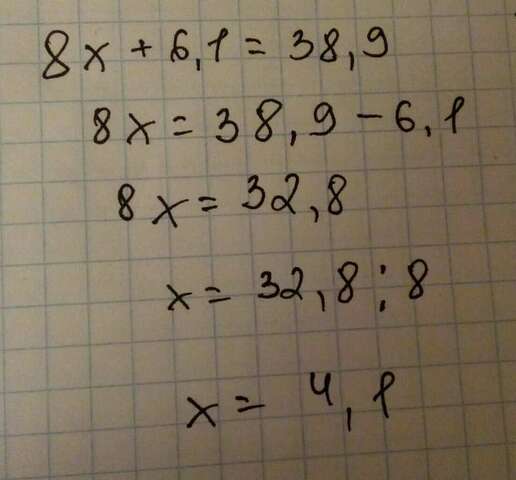 8x + 6,1 = 38,9
8x = 38,9 - 6,1
8x = 32,8
x = 32,8 : 8
x = 4,1